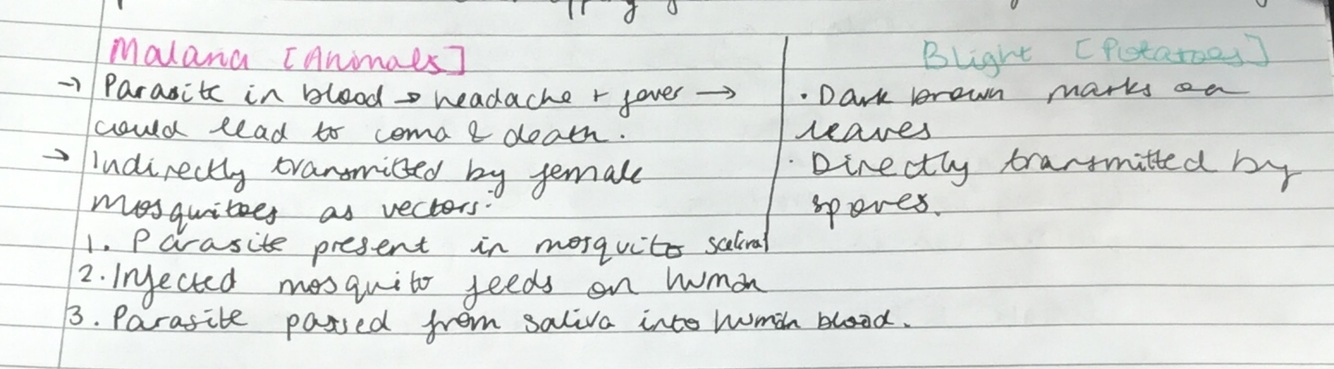 Malaria [Animals]
→ Parasite in blood → headache + fever →
could lead to coma & death.
→ Indirectly transmitted by female
mosquitoes as vectors:
1. Parasite present in mosquito
2. Infected mosquito feeds on human
3. Parasite passed from saliva into human blood.
Blight [Potatoes]
· Dark brown marks on
leaves
· Directly transmitted by
spores.